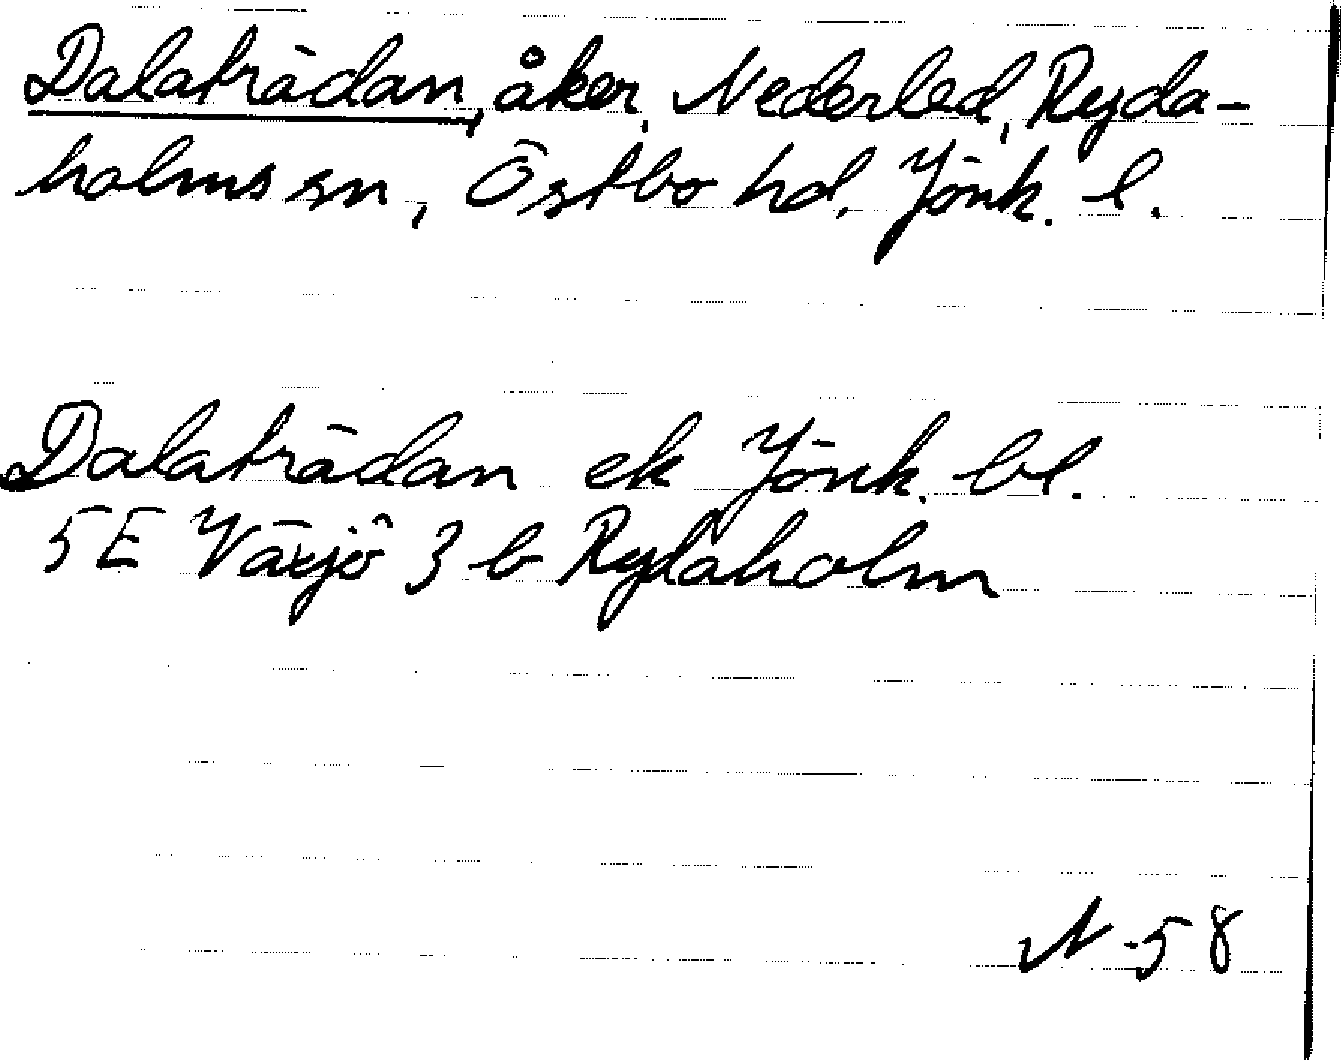 Dalaträdan, åker, Nederled, Ryda-
holms sn, Östbo hd, Jönk. l.
Dalaträdan ek Jönk. bl.
5E Växjö 3 b Rydaholm
N-58